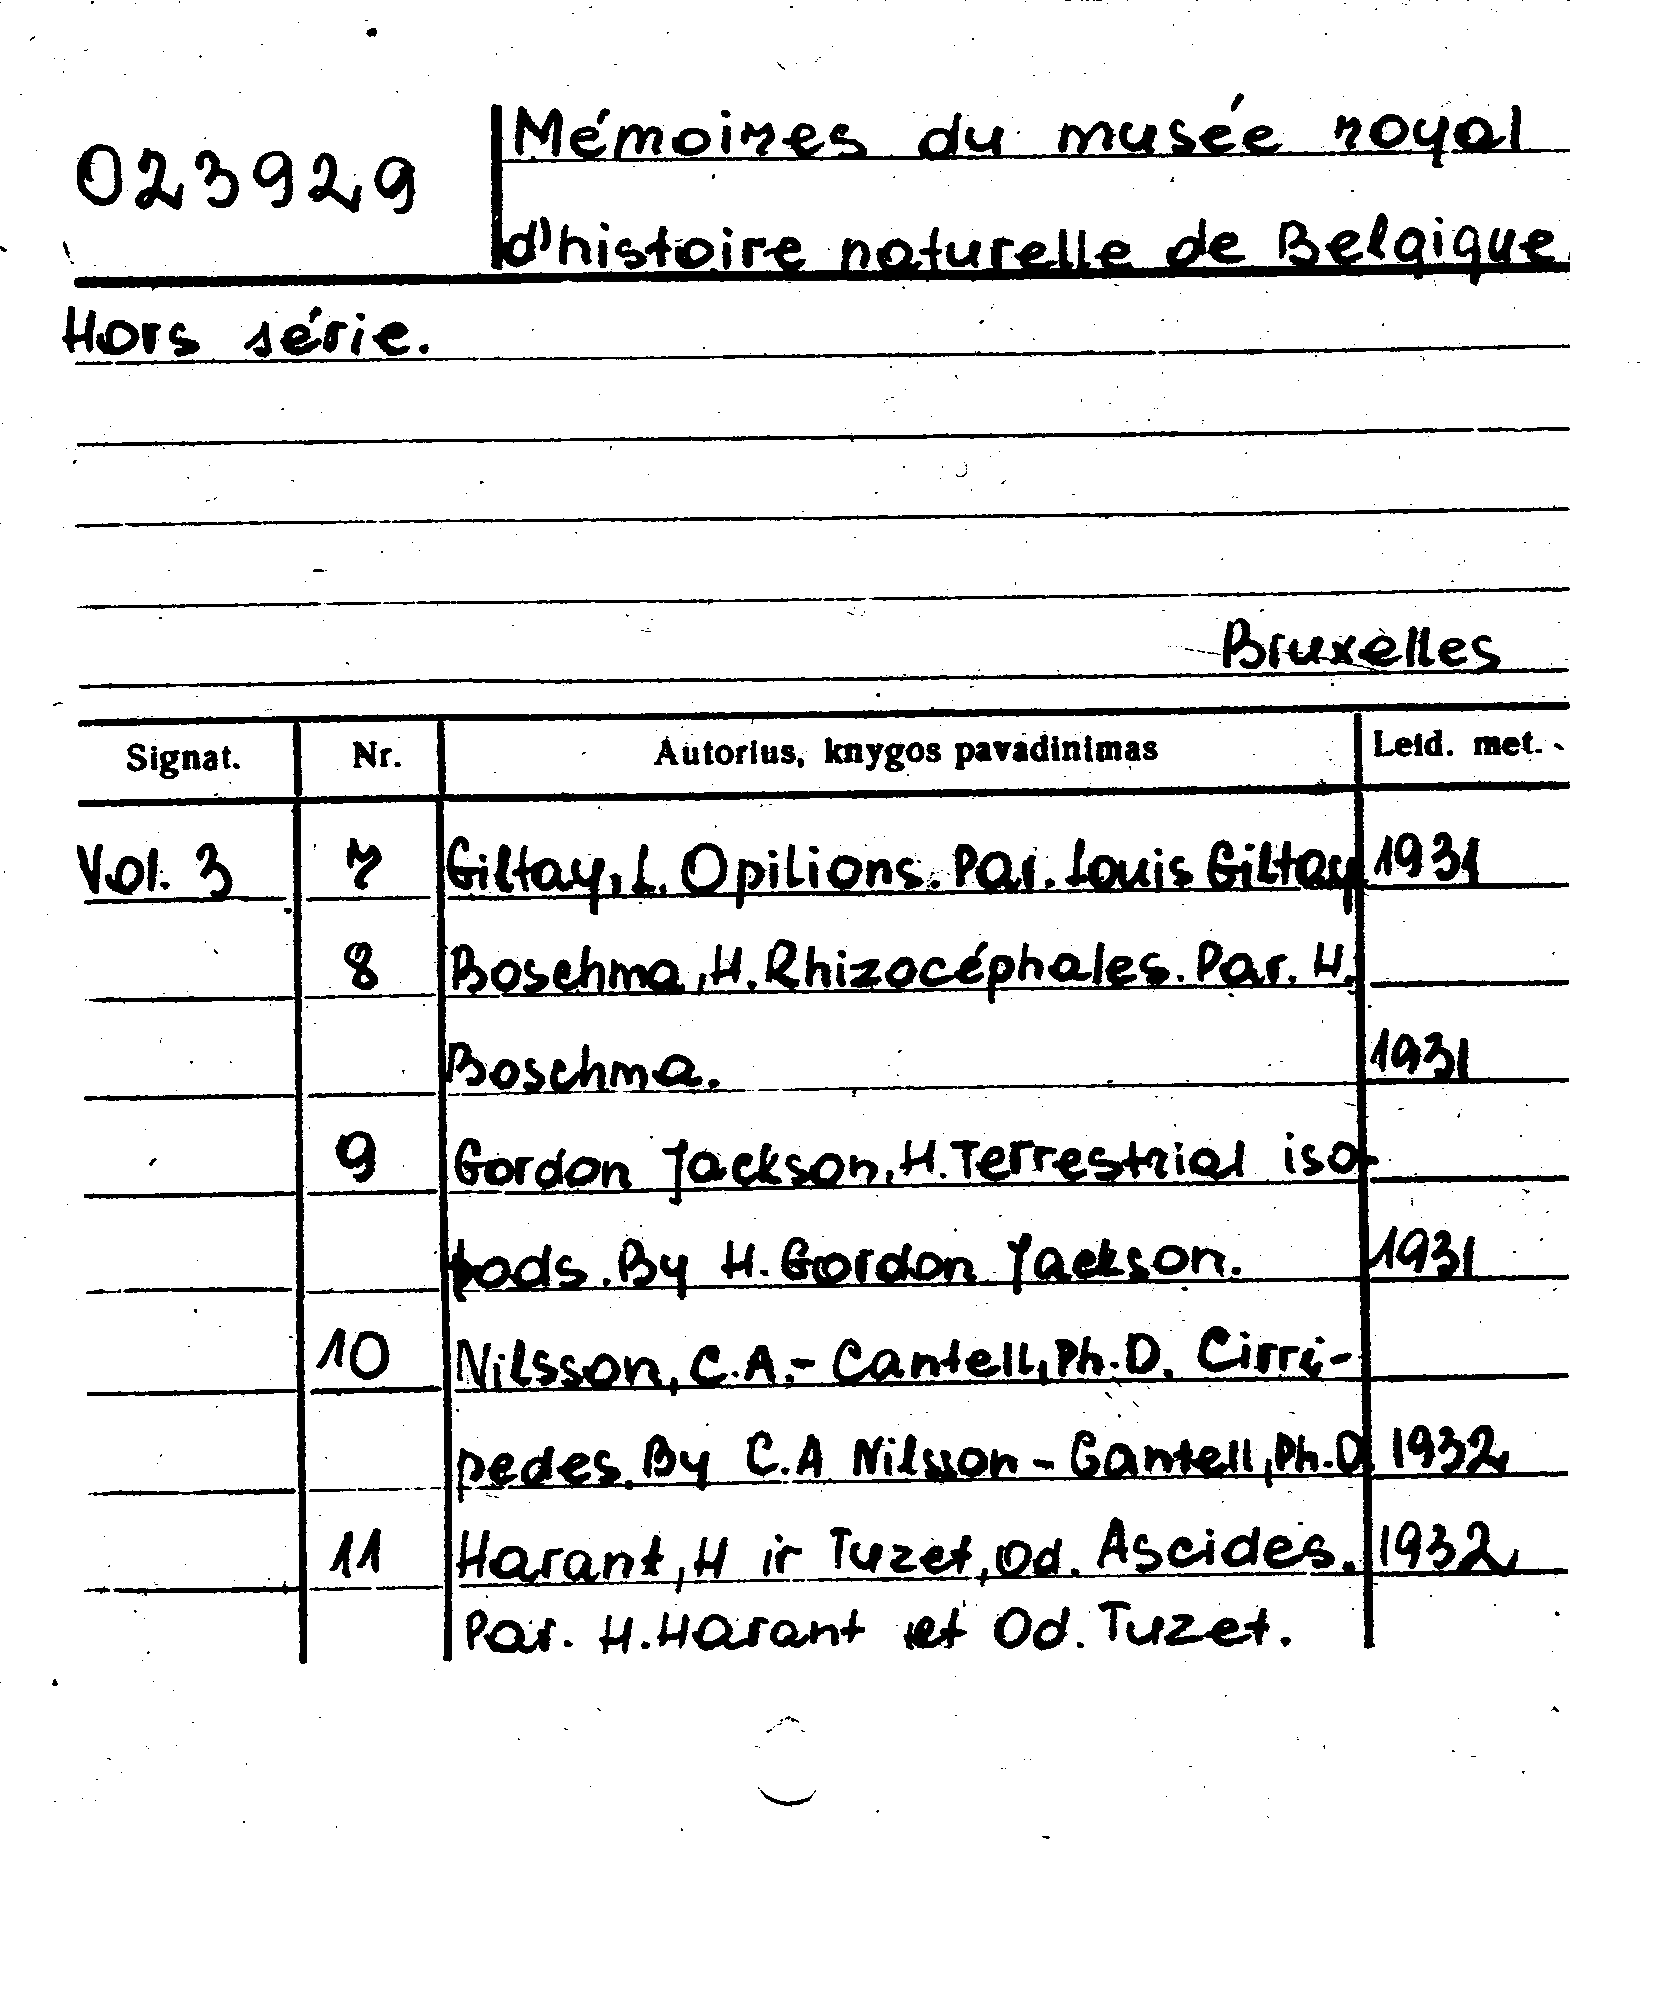 023929
Mémoires du musée royal
d'histoire naturelle de Belgique
Hors série.
Bruxelles
Signat. Nr. Autorius, knygos pavadinimas Leid. met.
Vol. 3 7 Giltay, L. Opilions. Par. Louis Giltay 1931
8 Boschma, H. Rhizocéphales. Par. H.
Boschma. 1931
9 Gordon Jackson, H. Terrestrial iso-
pods. By H. Gordon Jackson. 1931
10 Nilsson, C.A.- Cantell, Ph.D. Cirri-
pedes. By C.A Nilsson - Gantell, Ph.D 1932
11 Harant, H ir Tuzet, Od. Ascides. 1932
Par. H. Harant et Od. Tuzet.